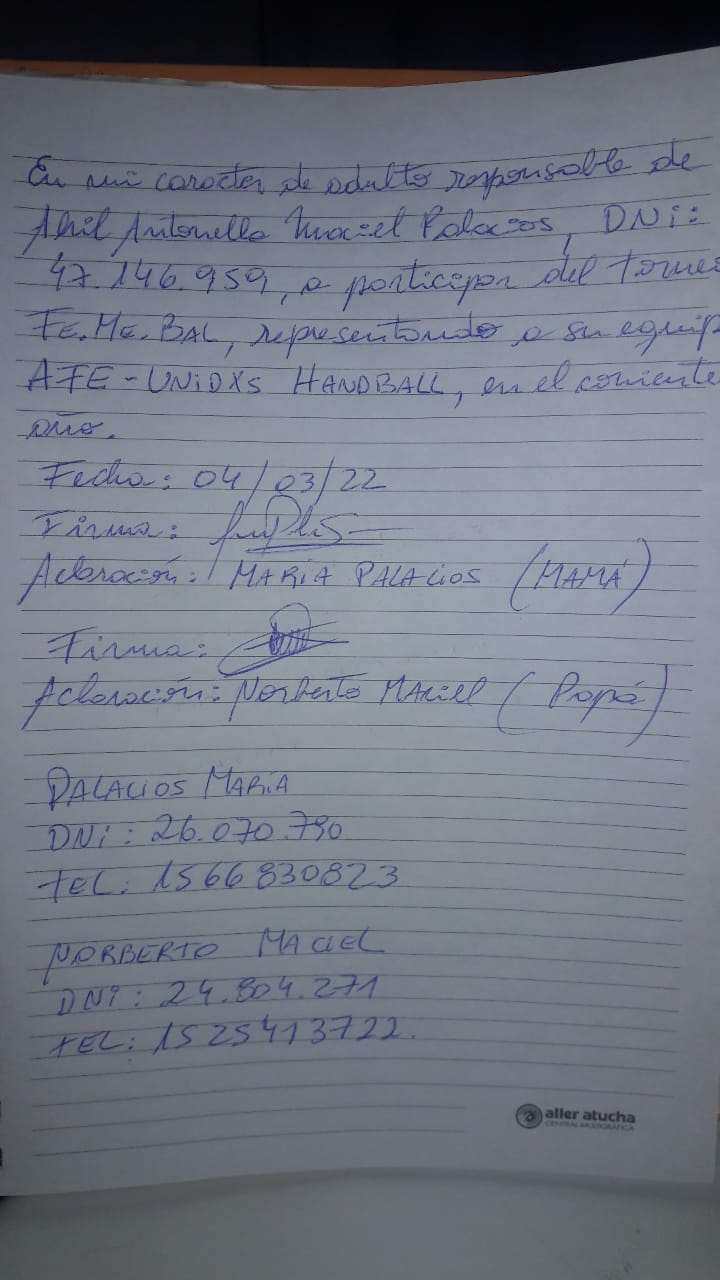 En mi caracter de adulto responsable de
Abril Antonella Maciel Palacios, DNi:
47.146.959, a participar del torneo
FE.ME.BAL, representando a su equip
AFE-UNiDXS HANDBALL, en el corriente
año.
Fecha: 04/03/22
Firma:
Aclaración: MARíA PALACIOS (MAMÁ)
Firma:
Aclaración: Norberto MAciel (Papá)
PALACIOS MARíA
DNi: 26.070.790
tEL: 1566830823
NORBERTO MACIEL
DNi: 24.804.271
tEL: 1525413722.
aller atucha
CENTRAL MULTIGRÁFICA